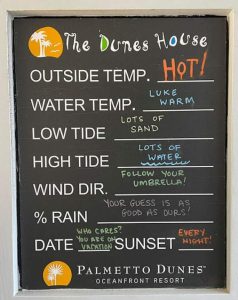 The Dunes House
OUTSIDE TEMP. HOT!
WATER TEMP. LUKE WARM
LOW TIDE LOTS OF SAND
HIGH TIDE LOTS OF WATER
WIND DIR. FOLLOW YOUR UMBRELLA!
% RAIN YOUR GUESS IS AS GOOD AS OURS!
DATE WHO CARES? YOU ARE ON VACATION SUNSET EVERY NIGHT!
PALMETTO DUNES™
OCEANFRONT RESORT